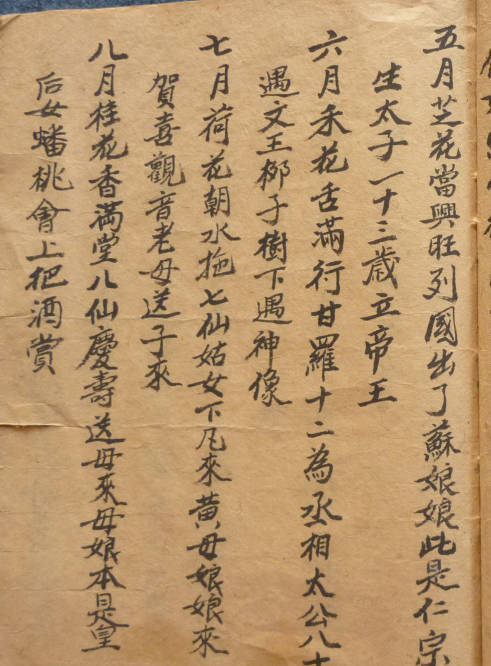 五月芝花當興旺列國出了蘇娘娘此是仁宗
生太子一十三歲立帝王
六月禾花舌滿行甘羅十二為丞相太公八十
遇文王梛子樹下遇神像
七月荷花朝水拖七仙姑女下凡來黄母娘娘來
賀喜觀音老母送子來
八月桂花香滿堂八仙慶壽送母來母娘本是皇
后女蟠桃會上把酒賞